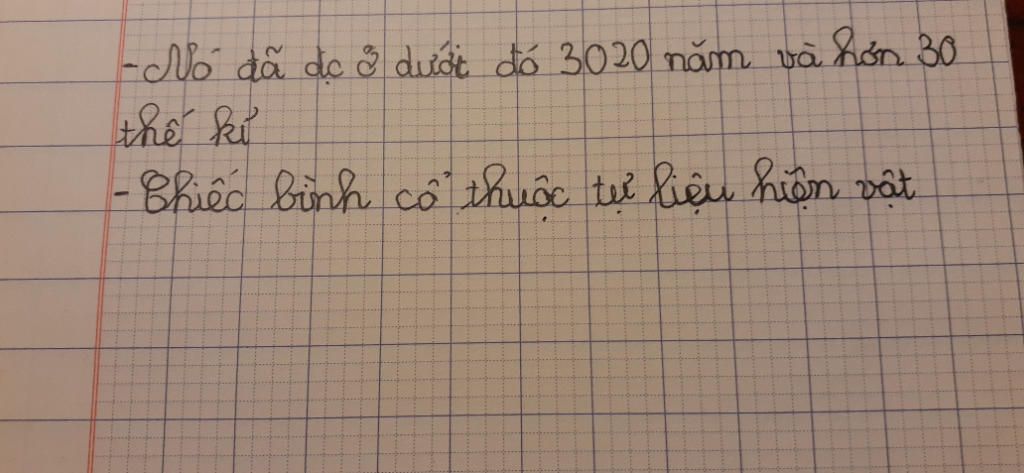 - Nó đã đc ở dưới đó 3020 năm và hơn 30
thế kỉ
- Chiếc bình cổ thuộc tự liệu hiện vật